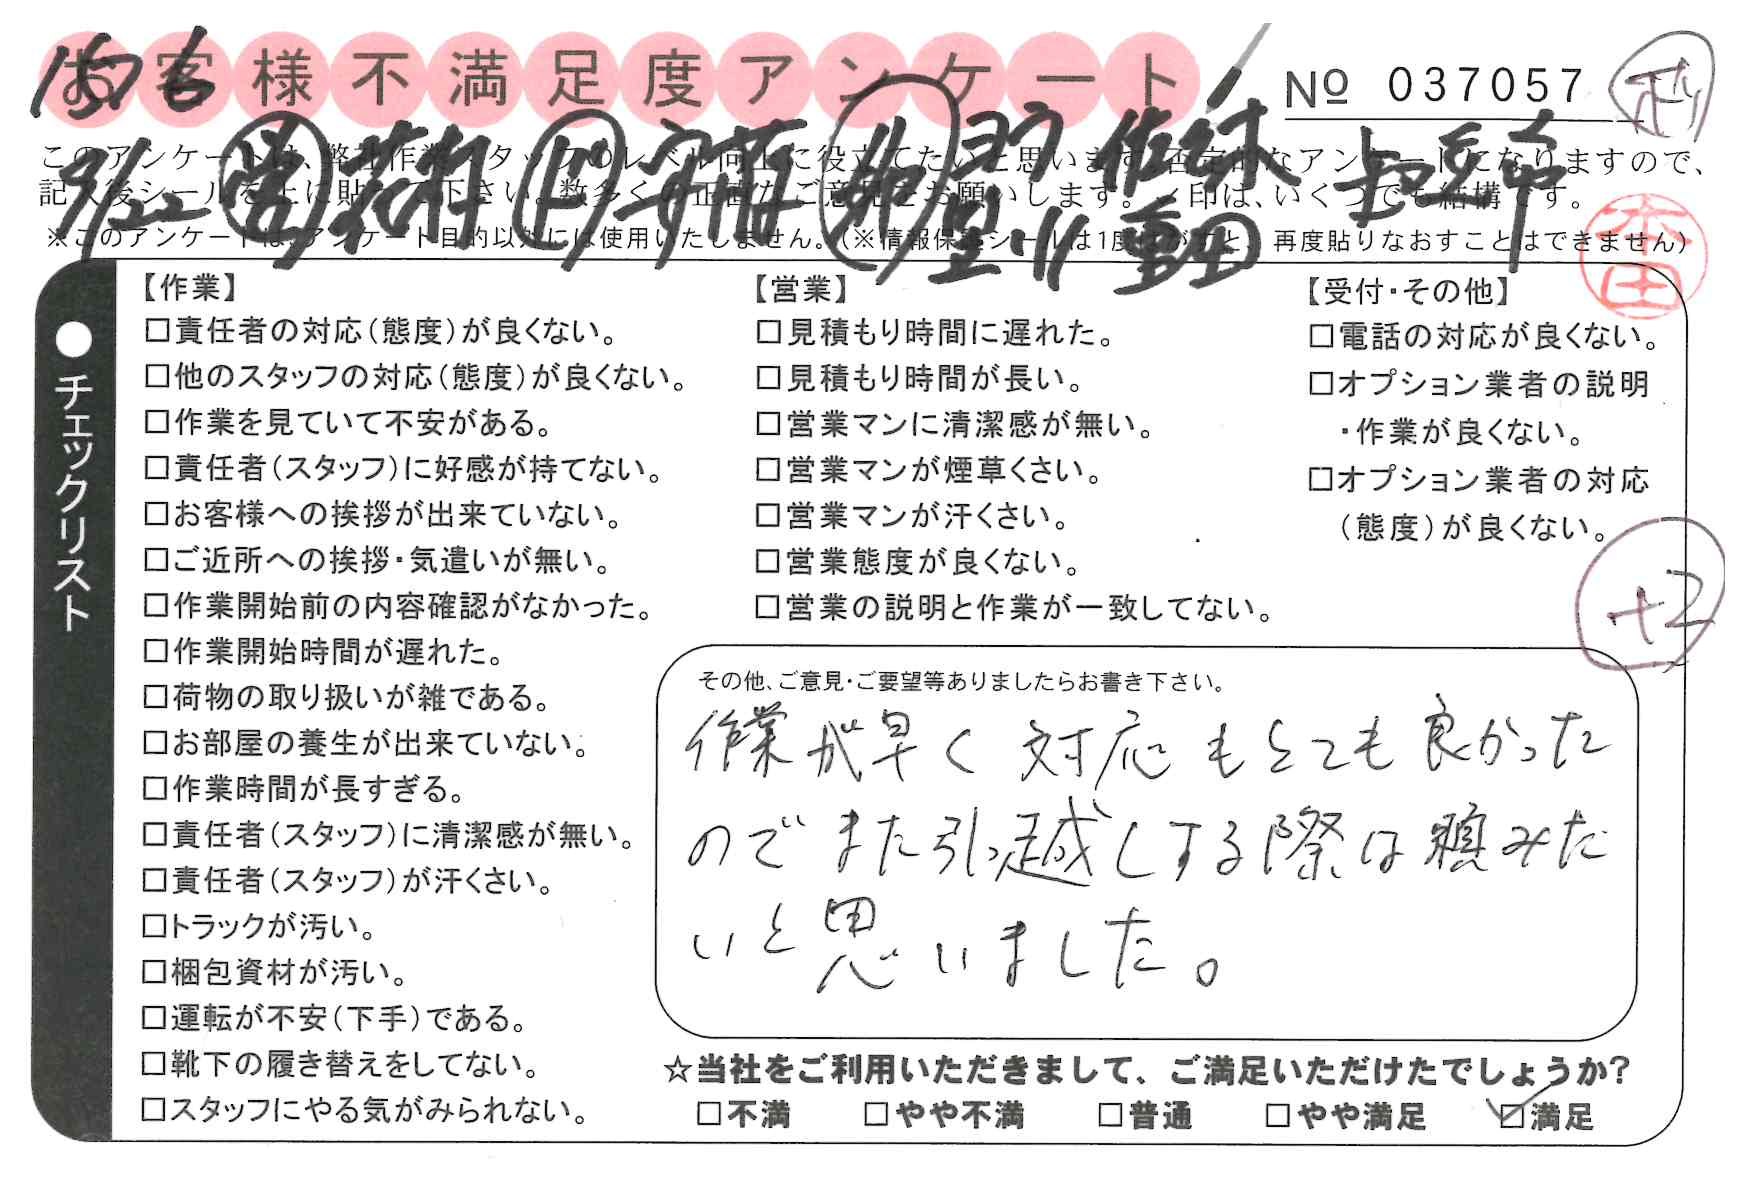 お客様不満足度アンケート
№ 037057
このアンケートは、弊社作業スタッフのレベル向上に役立てたいと思います。否定的なアンケートになりますので、
記入後シールを上に貼って下さい。数多くの正直なご意見をお願いします。✓印は、いくつでも結構です。
※このアンケートは、アンケート目的以外には使用いたしません。(※情報保護シールは1度はがすと、再度貼りなおすことはできません)
9/22
本田
●チェックリスト
【作業】
□責任者の対応(態度)が良くない。
□他のスタッフの対応(態度)が良くない。
□作業を見ていて不安がある。
□責任者(スタッフ)に好感が持てない。
□お客様への挨拶が出来ていない。
□ご近所への挨拶・気遣いが無い。
□作業開始前の内容確認がなかった。
□作業開始時間が遅れた。
□荷物の取り扱いが雑である。
□お部屋の養生が出来ていない。
□作業時間が長すぎる。
□責任者(スタッフ)に清潔感が無い。
□責任者(スタッフ)が汗くさい。
□トラックが汚い。
□梱包資材が汚い。
□運転が不安(下手)である。
□靴下の履き替えをしてない。
□スタッフにやる気がみられない。
【営業】
□見積もり時間に遅れた。
□見積もり時間が長い。
□営業マンに清潔感が無い。
□営業マンが煙草くさい。
□営業マンが汗くさい。
□営業態度が良くない。
□営業の説明と作業が一致してない。
【受付・その他】
□電話の対応が良くない。
□オプション業者の説明
・作業が良くない。
□オプション業者の対応
(態度)が良くない。
+2
その他、ご意見・ご要望等ありましたらお書き下さい。
作業が早く対応もとても良かった
のでまた引っ越しする際は頼みた
いと思いました。
☆当社をご利用いただきまして、ご満足いただけたでしょうか?
□不満 □やや不満 □普通 □やや満足 ☑満足